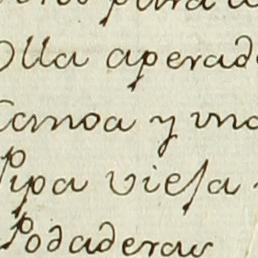 para
Olla aperad
Canoa y una
Pipa viesa
Podaderas